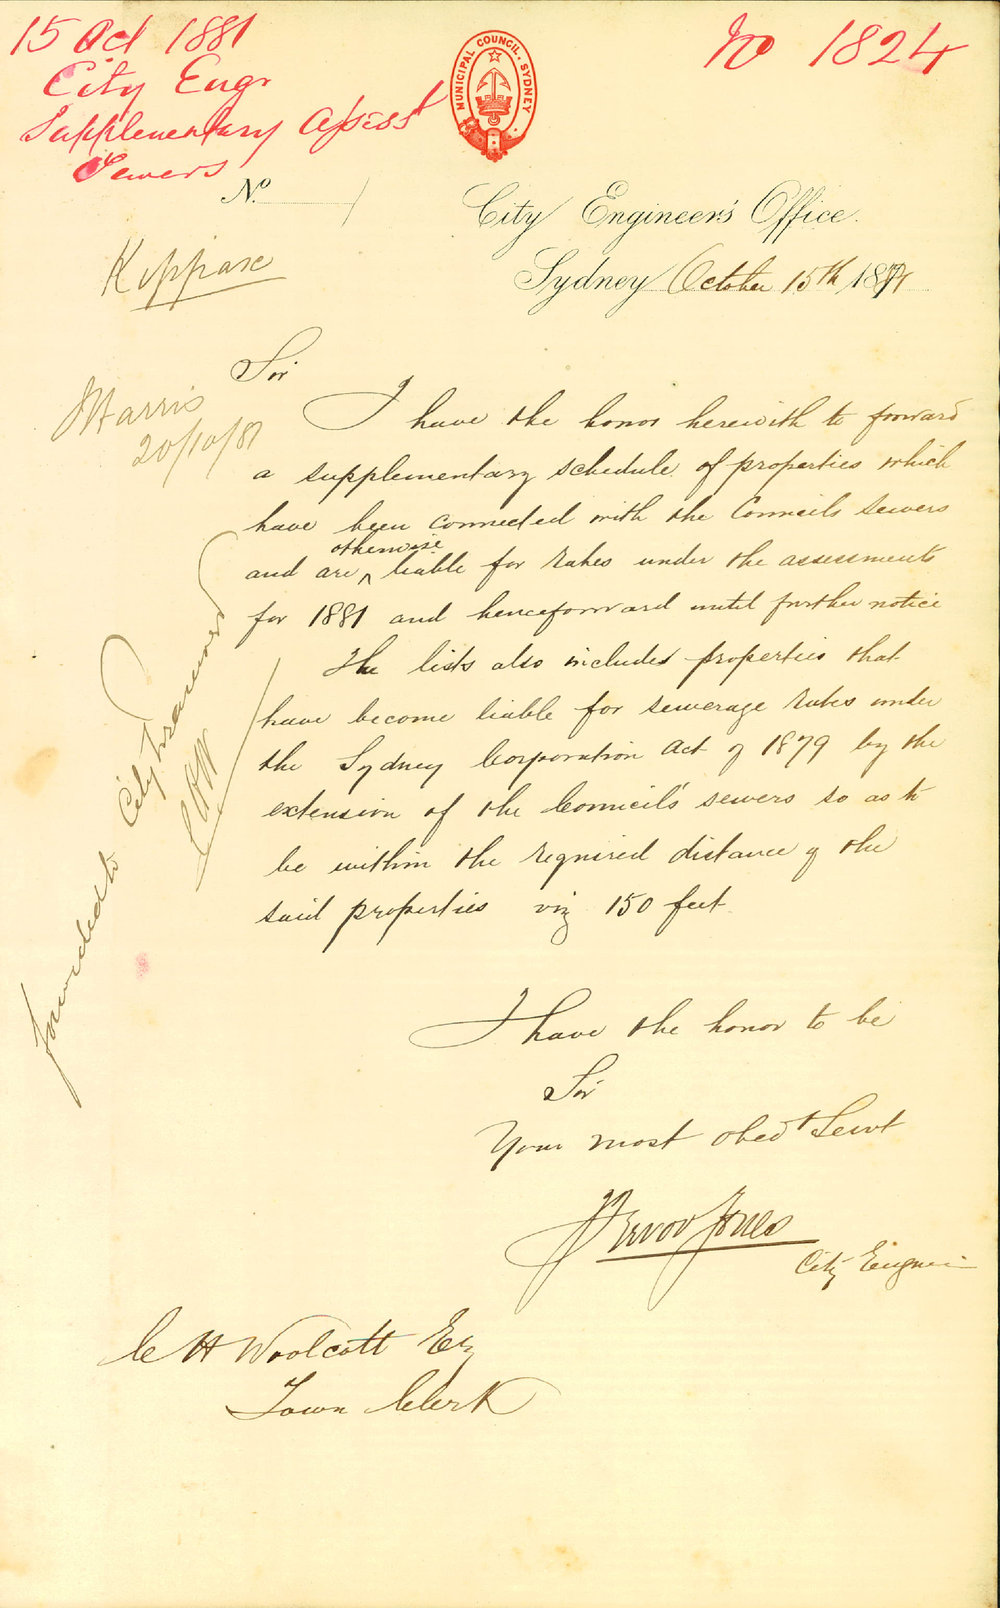 15 Oct 1881
City Engr
Supplementary Assesst
Sewers
No 1824
MUNICIPAL COUNCIL. SYDNEY
No.
City Engineer's Office.
Sydney October 15th 1881
Sir
I have the honor herewith to forward
a supplementary schedule of properties which
have been connected with the Councils sewers
and are otherwise liable for rates under the assessments
for 1881 and henceforward until further notice
The lists also includes properties that
have become liable for sewerage rates under
the Sydney Corporation Act of 1879 by the
extension of the Council's sewers so as to
be within the required distance of the
said properties viz 150 feet
I have the honor to be
Sir
Your most obedt Servt
Trevor Jones
City Engineer
C H Woolcott Esq
Town Clerk
Harris
20/10/81
forwarded to City Treasurer
CHW